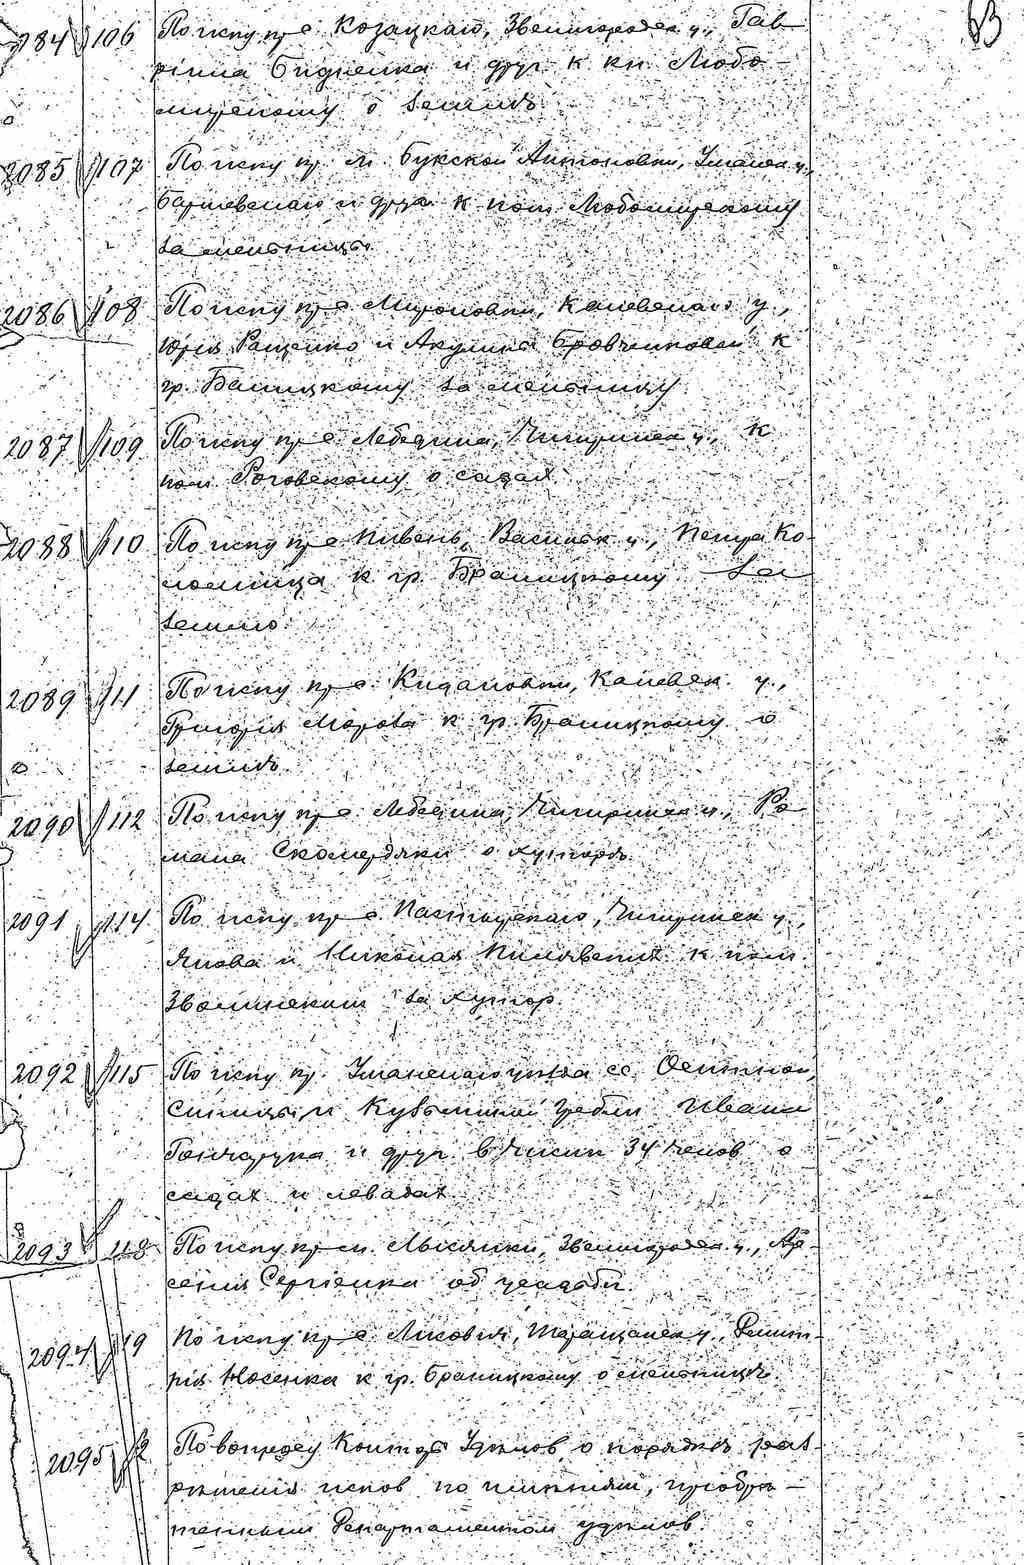 2084 106 По иску кр. с. Козацкаго, Звенигородск. у., Гав-
ріила Бидненка и друг. к кн. Любо-
мирскому о земле
2085 107 По иску кр. м. Букской Антоновки, Уманск. у.,
и друг. к пом. Любомирскому
за мельницы
2086 108 По иску кр. с. Мироновки, Каневскаго у.,
Юрия Ращенко и Акулины Бровченковой к
гр. Браницкому за мельницу
2087 109 По иску кр. с. Лебедина, Чигиринск. у., к
пом. Роговскому о садах
2088 110 По иску кр. с. Пивень, Васильк. у., Петра Ко-
ломийца к гр. Браницкому за
землю.
2089 111 По иску кр. с. Кидановки, Каневск. у.,
Григория Мороза к гр. Браницкому о
земле.
2090 112 По иску кр. с. Лебедина, Чигиринск. у., Ро-
мана Скомердяки о хуторе.
2091 114 По иску кр. с. Пастырскаго, Чигиринск. у.,
Якова и Николая к пом.
Зволинским за хутор.
2092 115 По иску кр. Уманскаго уезда с.с. Оситной,
Синицы и Кузьминой Гребли Ивана
Гончарука и друг. в числе 34 челов. о
садах и левадах.
2093 118 По иску кр. м. Лысянки, Звенигородск. у., Ар-
сения Сергіенка об усадьбе.
2094 119 По иску кр. с. Лисович, Таращанск. у., Дмит-
рія Носенка к гр. Браницкому о мельнице.
2095 2 По вопросу Контор Уделов о порядке раз-
решенія исков по имениям, приобре-
тенным Департаментом уделов.